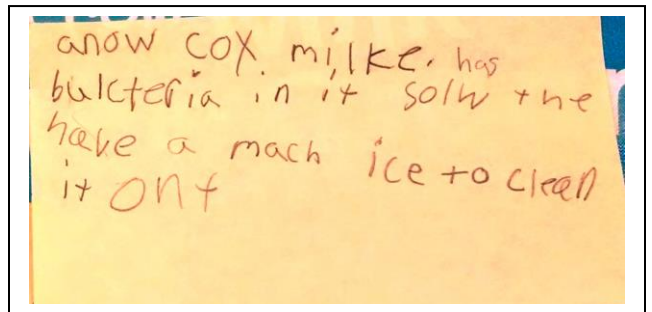 anow cox milke. has
bulcteria in it solw the
have a mach ice to clean
it ont